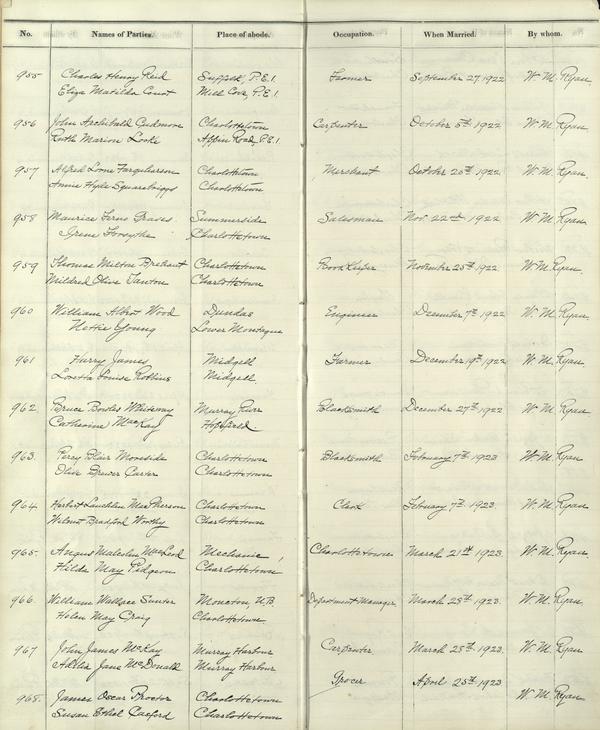 No. Names of Parties. Place of abode. Occupation. When Married. By whom.
955 Charles Henry Reid Suffolk, P.E.I. Farmer September 27, 1922 W. M. Ryan.
Eliza Matilda Court Mill Cove, P.E.I.
956 John Archibald Cudmore Charlottetown Carpenter October 5th 1922 W. M. Ryan
Ruth Marion Locke Appin Road, P.E.I.
957 Alfred Lorne Farquharson Charlottetown Merchant October 1922 W. M. Ryan.
Annie Hyde Charlottetown
958 Maurice Summerside Salesman Nov. 22nd 1922 W. M. Ryan
Irene Forsythe Charlottetown
959 Thomas Milton Charlottetown Book Keeper November 25th 1922 W. M. Ryan.
Mildred Olive Tanton Charlottetown
960 William Wood Dundas Engineer December 7th 1922 W. M. Ryan.
Nettie Young Lower Montague
961 Harry James Midgell Farmer December 19th 1922 W. M. Ryan
Loretta Louise Robbins Midgell
962 Bruce Bowles Whiteway Murray River Blacksmith December 27th 1922 W. M. Ryan
Catherine MacKay Hopefield
963 Percy Blair Charlottetown Blacksmith February 7th 1923 W. M. Ryan
Olive Brewer Carter Charlottetown
964 Herbert Lauchlin MacPherson Charlottetown Clerk February 7th 1923. W. M. Ryan
Bradford Worthy Charlottetown
965. Angus Malcolm MacLeod Mechanic, Charlottetown March 21st 1923. W. M. Ryan
Hilda May Pidgeon Charlottetown
966. William Wallace Sunter Moncton, N.B. Department Manager March 28th 1923. W. M. Ryan
Helen May Craig Charlottetown
967 John James McKay Murray Harbour Carpenter March 28th 1923. W. M. Ryan
Jane McDonald Murray Harbour
Grocer April 25th 1923
968. James Oscar Proctor Charlottetown W. M. Ryan
Susan Ethel Charlottetown